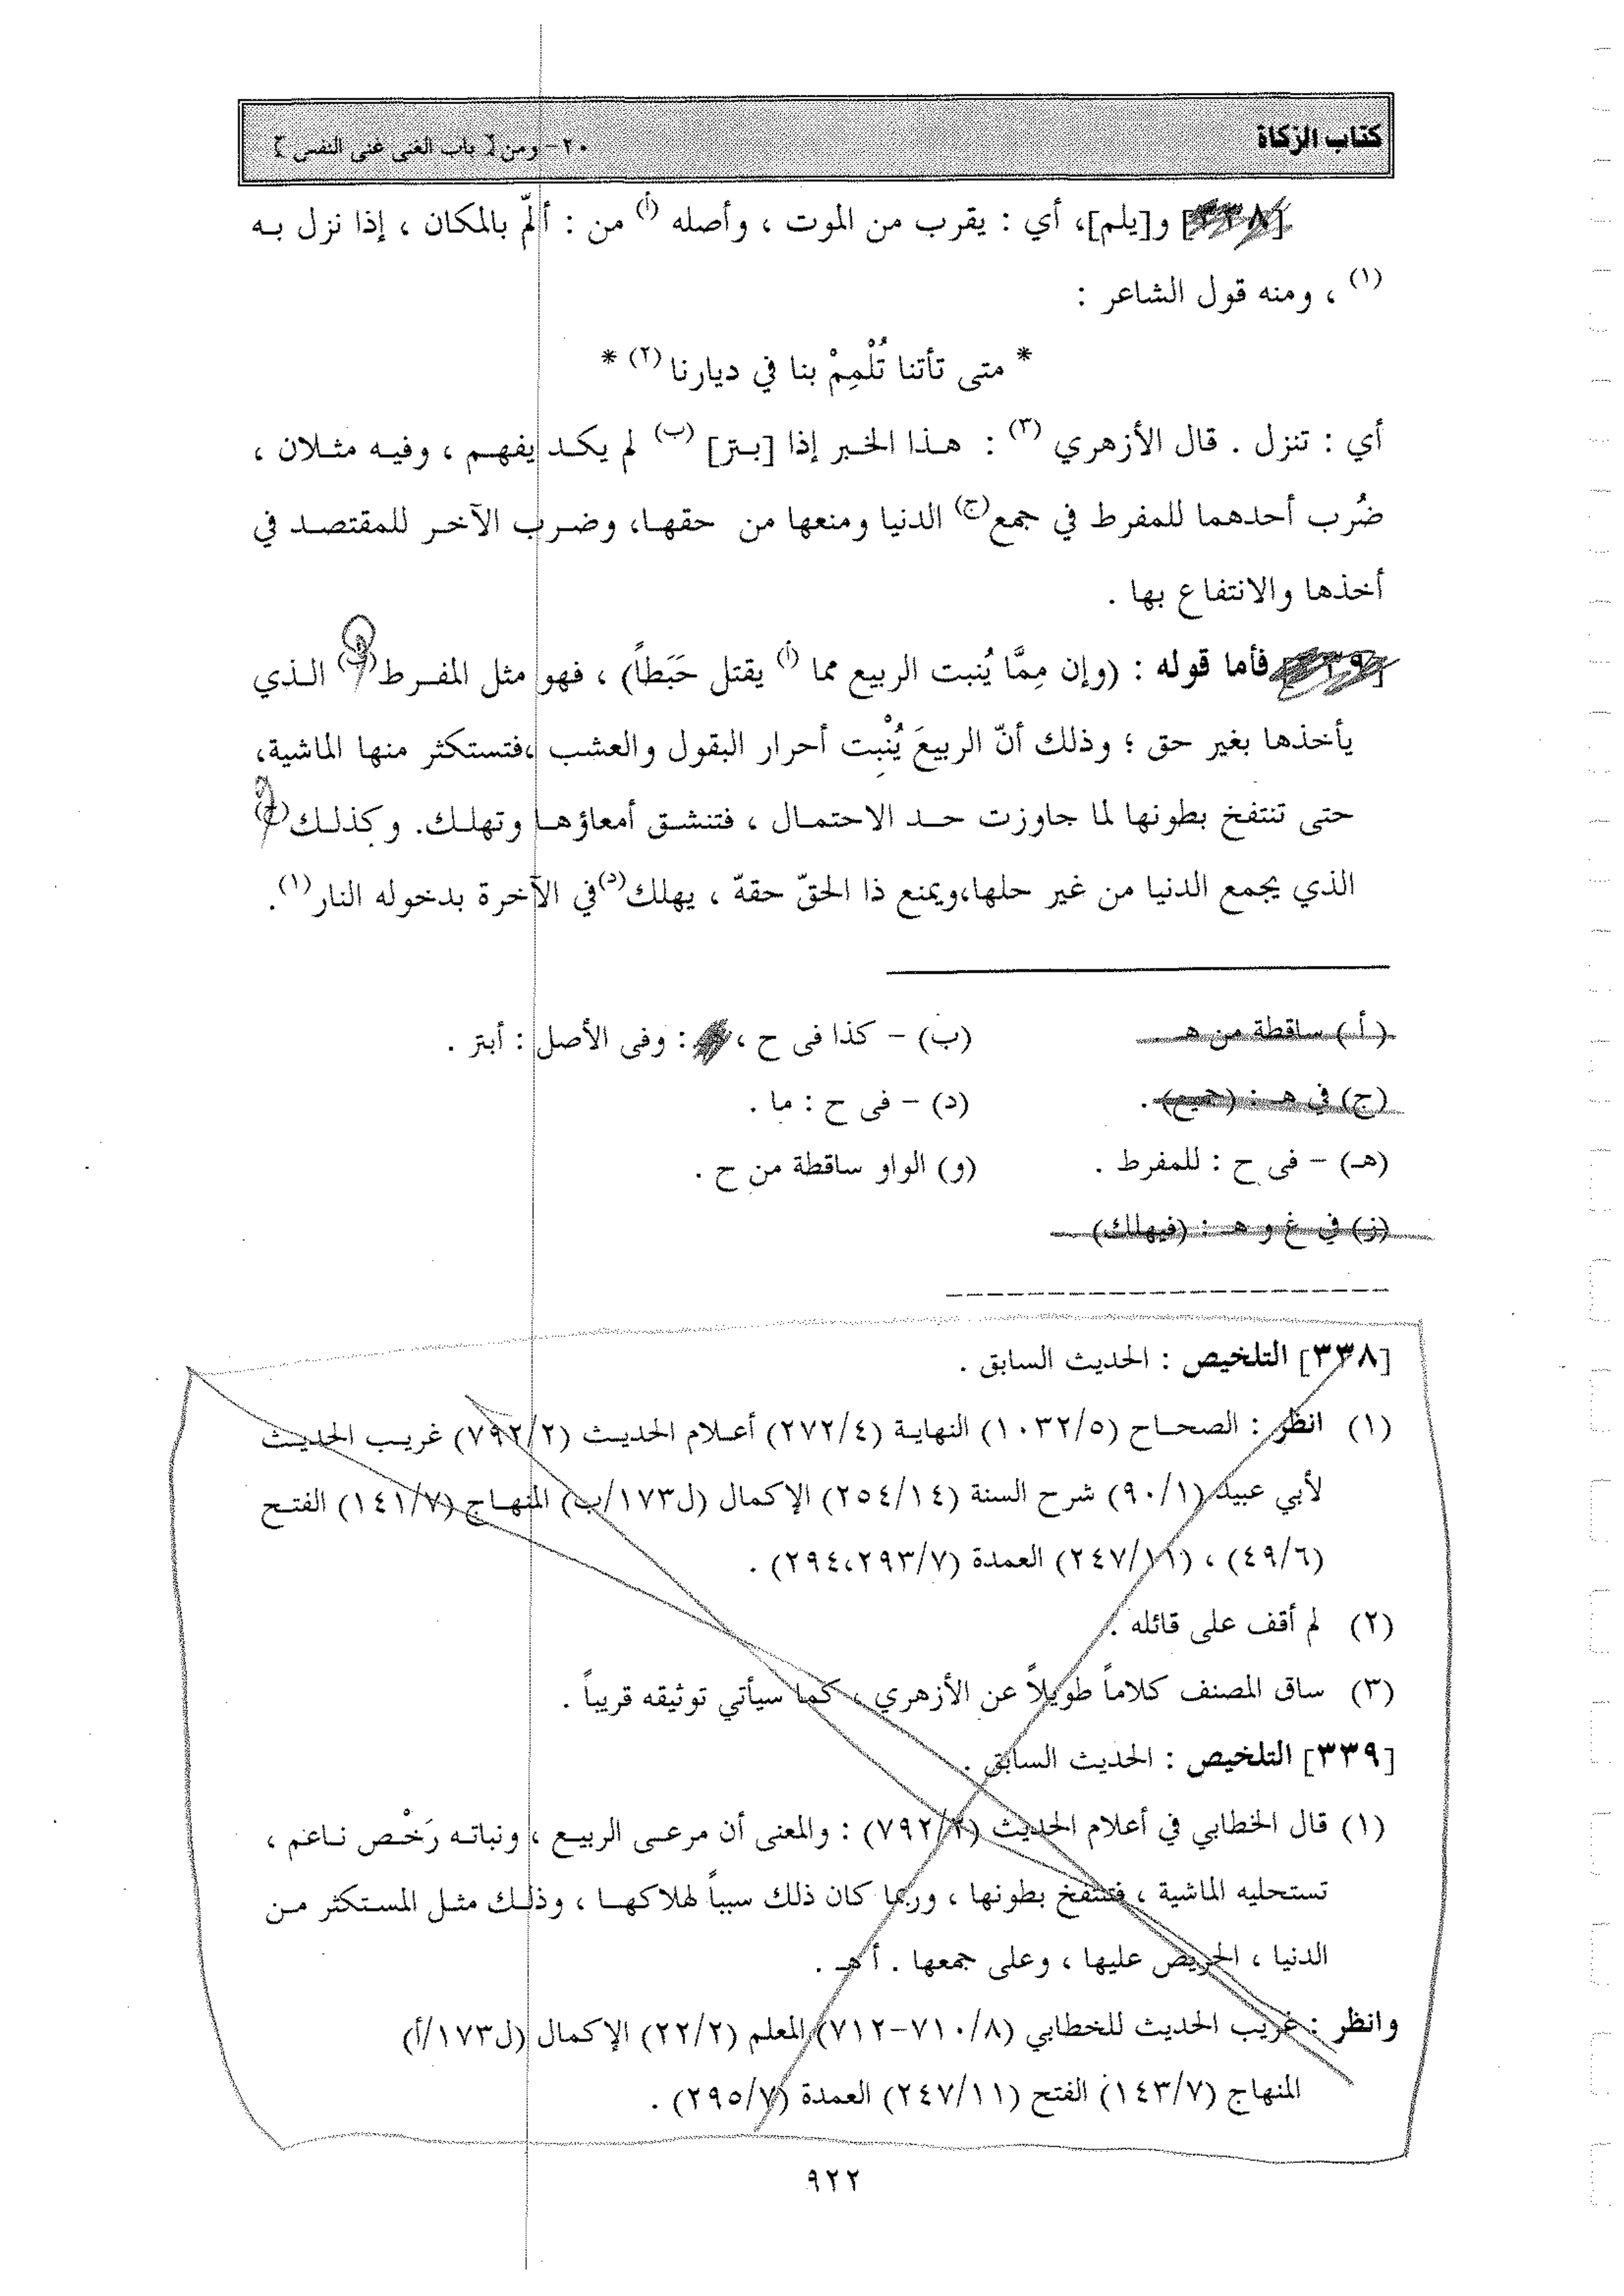 كتاب الزكاة
٢٠ - ومن [ باب الغنى غنى النفس ]
[٣٣٨] و[يلم]، أي : يقرب من الموت ، وأصله (أ) من : ألمّ بالمكان ، إذا نزل بـه
(١) ، ومنه قول الشاعر :
* متى تأتنا تُلْمِمْ بنا في ديارنا (٢) *
أي : تنزل . قال الأزهري (٣) : هـذا الخـبر إذا [بـتر] (ب) لم يكـد يفهـم ، وفيـه مثـلان ،
ضُرب أحدهما للمفرط في جمع (ج) الدنيا ومنعها من حقهـا، وضـرب الآخـر للمقتصـد في
أخذها والانتفاع بها .
[٣٣٩] فأما قوله : (وإن مِمَّا يُنبت الربيع مما (أ) يقتل حَبَطاً) ، فهو مثل المفـرط (ب) الـذي
يأخذها بغير حق ؛ وذلك أنّ الربيعَ يُنْبِت أحرار البقول والعشب ،فتستكثر منها الماشية،
حتى تنتفخ بطونها لما جاوزت حـد الاحتمـال ، فتنشـق أمعاؤهـا وتهلـك. وكذلـك (ج)
الذي يجمع الدنيا من غير حلها،ويمنع ذا الحقّ حقهّ ، يهلك (د) في الآخرة بدخوله النار (١).
(أ) ساقطة من هـ .
(ب) - كذا فى ح ، : وفى الأصل : أبتر .
(ج) في هـ : (جميع) .
(د) - فى ح : ما .
(هـ) - فى ح : للمفرط .
(و) الواو ساقطة من ح .
(ز) في غ و هـ : (فيهلك)
[٣٣٨] التلخيص : الحديث السابق .
(١) انظر : الصحـاح (١٠٣٢/٥) النهايـة (٢٧٢/٤) أعـلام الحديـث (٧٩٢/٢) غريـب الحديـث
لأبي عبيد (٩٠/١) شرح السنة (٢٥٤/١٤) الإكمال (ل١٧٣/ب) المنهـاج (١٤١/٧) الفتـح
(٤٩/٦) ، (٢٤٧/١١) العمدة (٢٩٤،٢٩٣/٧) .
(٢) لم أقف على قائله .
(٣) ساق المصنف كلاماً طويلاً عن الأزهري ، كما سيأتي توثيقه قريباً .
[٣٣٩] التلخيص : الحديث السابق .
(١) قال الخطابي في أعلام الحديث (٧٩٢/٢) : والمعنى أن مرعـى الربيـع ، ونباتـه رَخْـص نـاعم ،
تستحليه الماشية ، فتنتفخ بطونها ، وربما كان ذلك سبباً لهلاكهـا ، وذلـك مثـل المسـتكثر مـن
الدنيا ، الحريص عليها ، وعلى جمعها . أ هـ .
وانظر : غريب الحديث للخطابي (٧١٠/٨-٧١٢) المعلم (٢٢/٢) الإكمال (ل١٧٣/أ)
المنهاج (١٤٣/٧) الفتح (٢٤٧/١١) العمدة (٢٩٥/٧) .
٩٢٢